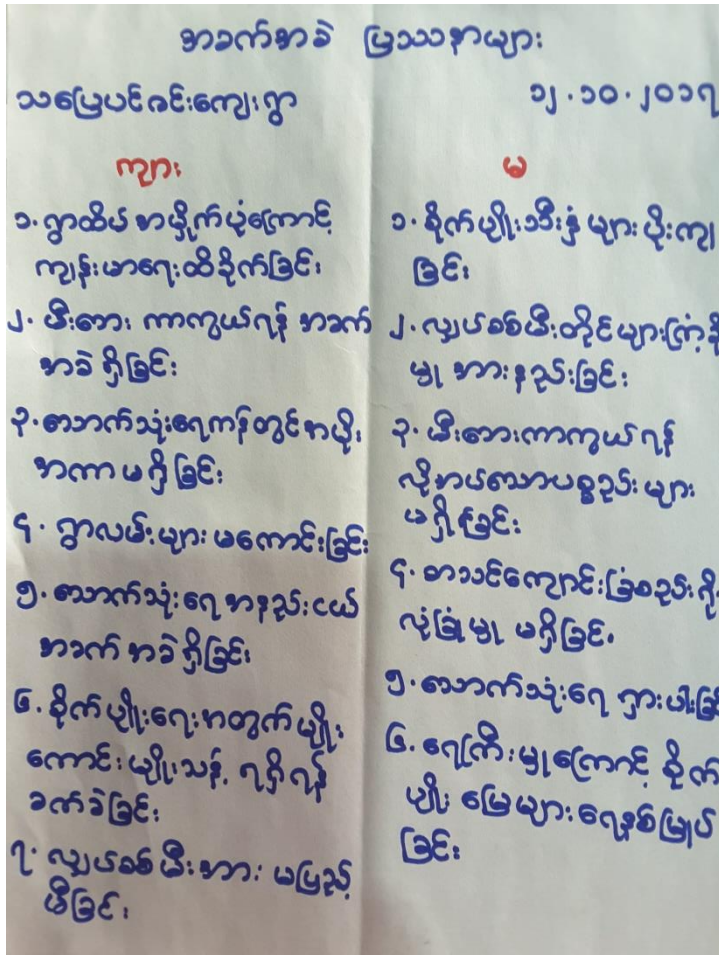 အခက်အခဲ ပြဿနာများ
သပြေပင်ဂင်းကျေးရွာ ၁၂.၁၀.၂၀၁၇
ကျား
၁. ရွာထိပ် အမှိုက်ပုံကြောင့်
ကျန်းမာရေးထိခိုက်ခြင်း
၂. မီးဘေး ကာကွယ်ရန် အခက်
အခဲ ရှိခြင်း
၃. သောက်သုံးရေကန်တွင်အမိုး
အကာ မရှိခြင်း
၄. ရွာလမ်းများ မကောင်းခြင်း
၅. သောက်သုံးရေ အနည်းငယ်
အခက်အခဲရှိခြင်း
၆. စိုက်ပျိုးရေးအတွက်မျိုး
ကောင်းမျိုးသန့် ရရှိရန်
ခက်ခဲခြင်း
၇. လျှပ်စစ်မီးအား မပြည့်
မီခြင်း
မ
၁. စိုက်ပျိုးသီးနှံများပိုးကျ
ခြင်း
၂. လျှပ်စစ်မီးတိုင်များကြံ့ခို
မှု အားနည်းခြင်း
၃. မီးဘေးကာကွယ်ရန်
လိုအပ်သောပစ္စည်းများ
မရှိခြင်း
၄. စာသင်ကျောင်းခြံစည်းရို
လုံခြုံမှု မရှိခြင်း
၅. သောက်သုံးရေ ရှားပါးခြ
၆. ရေကြီးမှုကြောင့် စိုက်
ပျိုး မြေများရေနစ်မြုပ်
ခြင်း